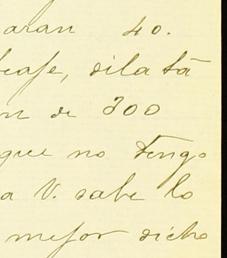 aran 40.
case, dilatá
n de 300
que no tengo
a V. sabe lo
mejor dicho